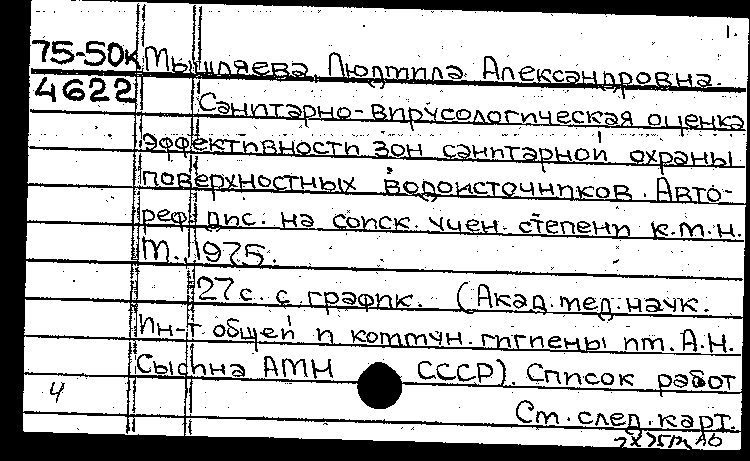 1.
75-50к Мышляева, Людмила Александровна.
4622 Санитарно-вирусологическая оценка
эффективности зон санитарной охраны
поверхностных водоисточников. Авто-
реф. дис. на соиск. учен. степени к.м.н.
М., 1975.
27 с. с график. (Акад. мед. наук.
Ин-т общей и коммун. гигиены им. А.Н.
Сысина АМН СССР). Список работ
4 См. след. карт.